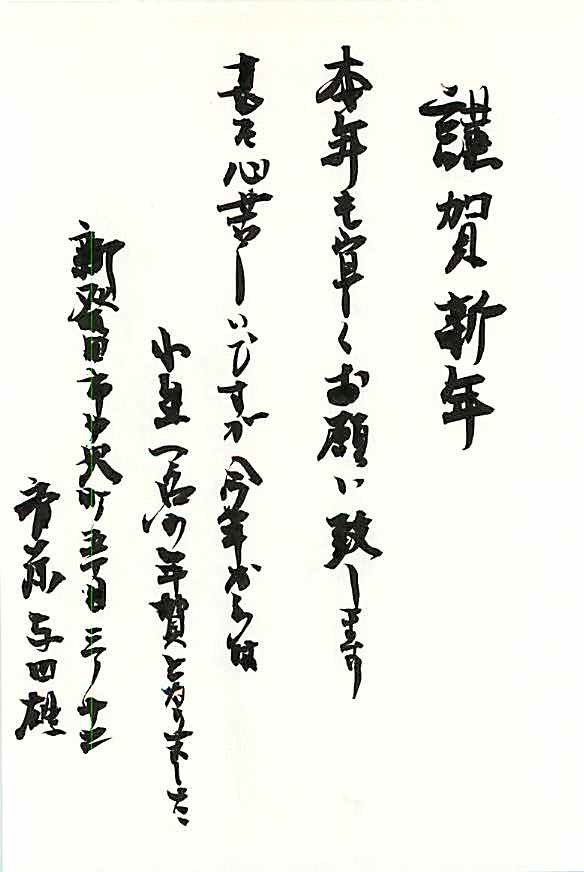 謹賀新年
本年も宜しくお願い致します
甚だ心苦しいですが今年からは
小生一名の年賀となりました
新発田市中央町五丁目三ノ十三
斉藤与四雄